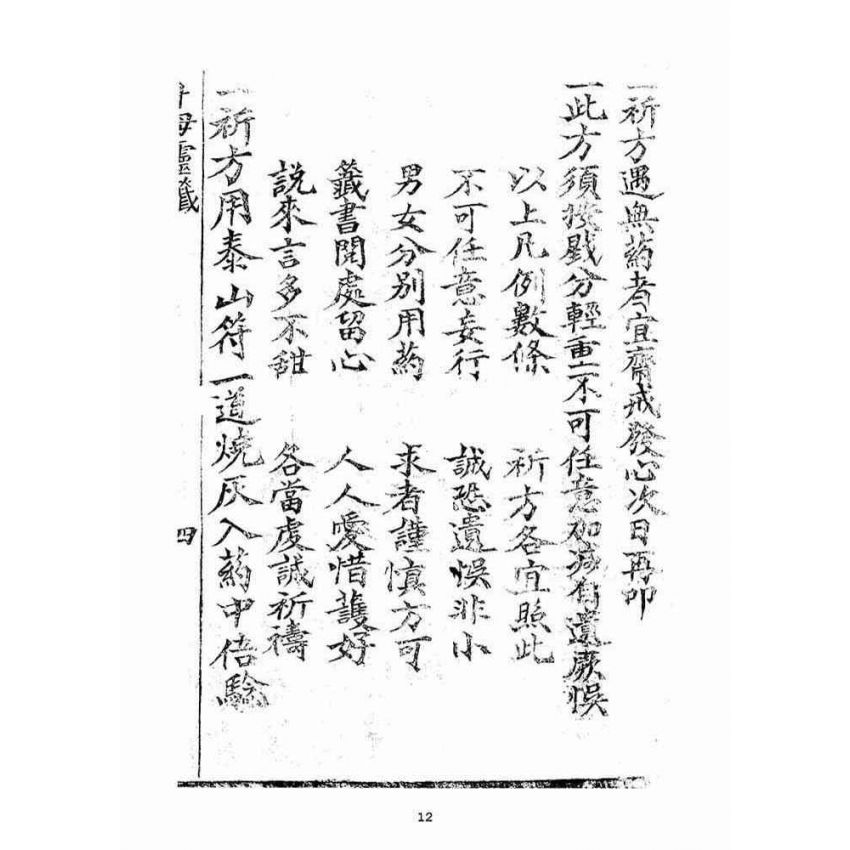 一祈方遇無药者宜齋戒發心次日再叩
一此方須按戥分輕重不可任意加減有遺厥悞
以上凡例數條 祈方各宜照此
不可任意妄行 誠恐遺悞非小
男女分别用药 求者謹慎方可
籤書閱處留心 人人愛惜護好
説來言多不甜 各當虔誠祈禱
一祈方用泰山符一道燒灰入药中倍驗
母靈籤
四
12